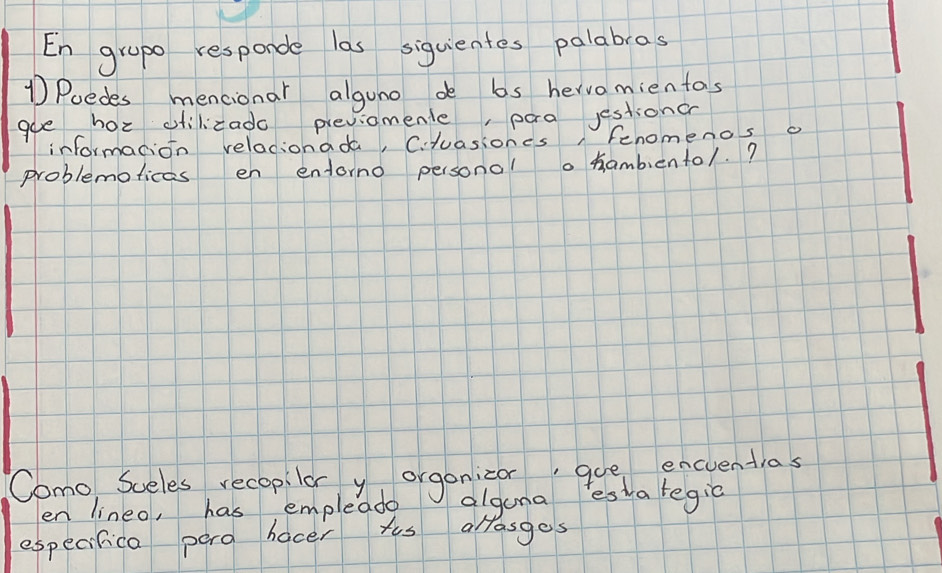 En grupo responde las siguientes palabras
1) Puedes mencionar alguno de las herramientas
que haz utilizado previamente, para jestionar
información relacionada, Cituasiones, fenomenos o
problematicas en entorno personal o hambiental.?
Como Sueles recopilar y organizar, que encuentras
en linea, has empleado alguna estrategia
especifica para hacer tus allasgos